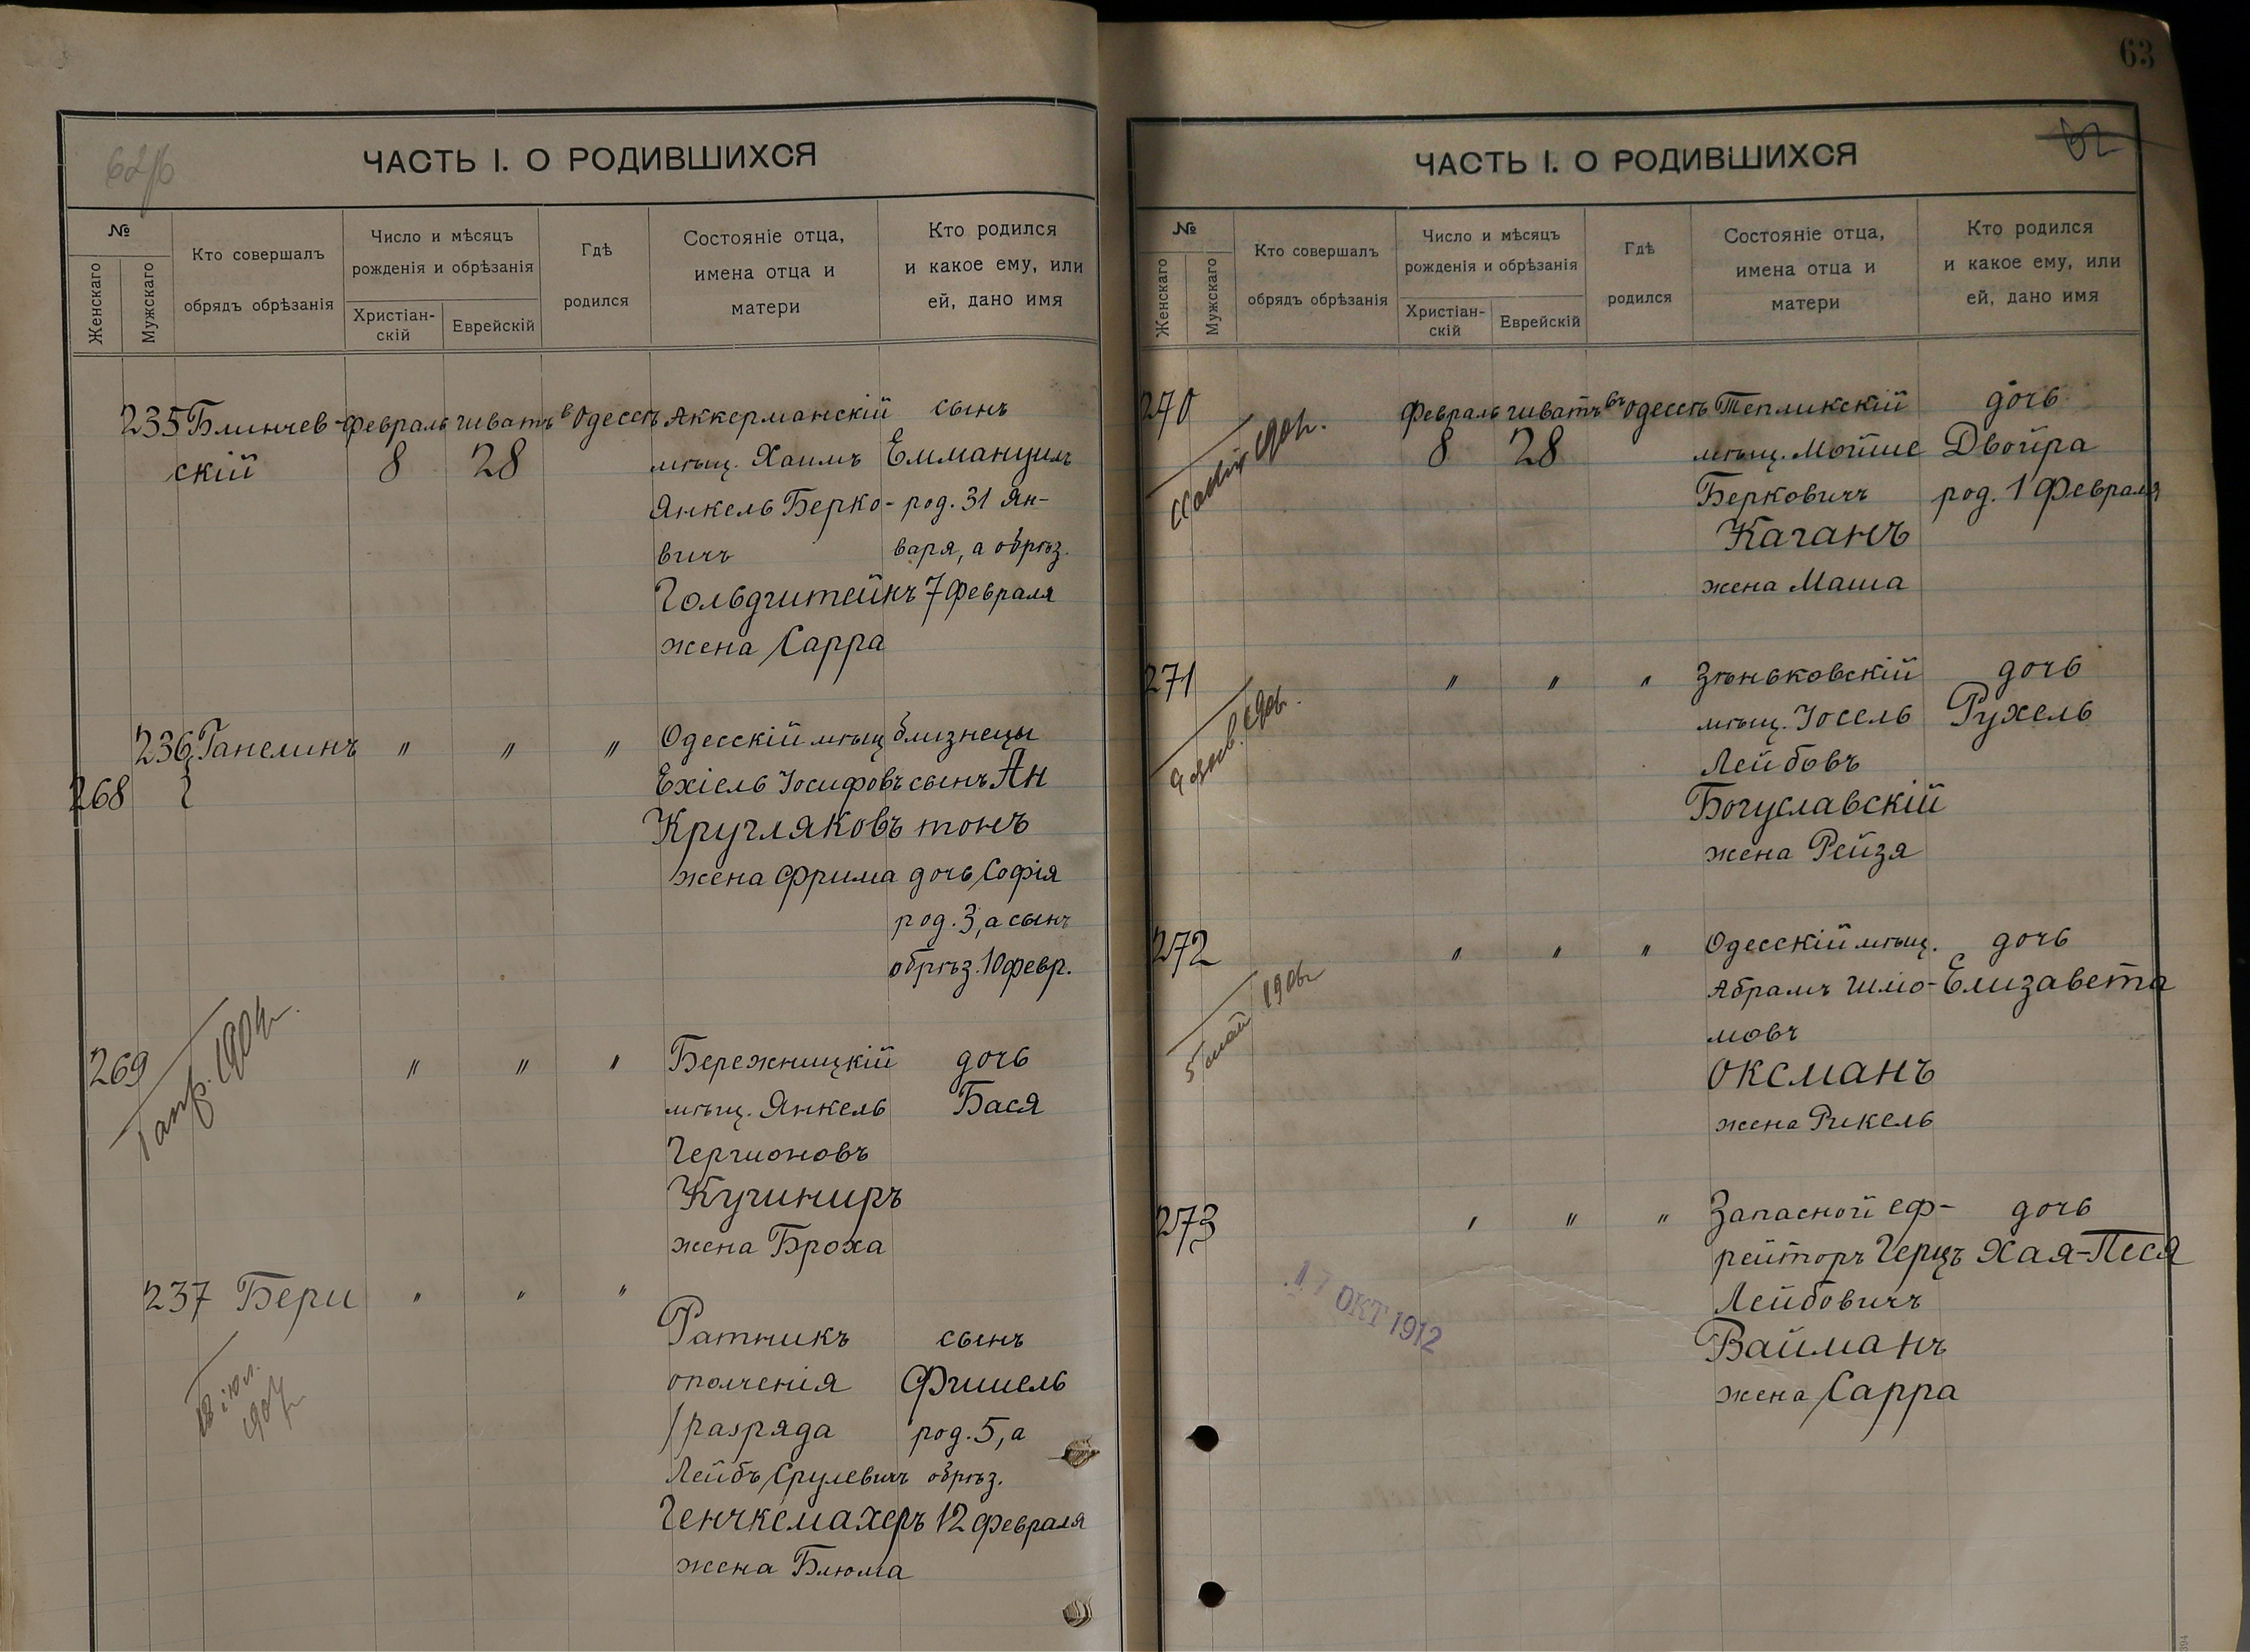 62/б
ЧАСТЬ I. О РОДИВШИХСЯ
№
Женскаго
Мужскаго
Кто совершалъ
обрядъ обрѣзанія
Число и мѣсяцъ
рожденія и обрѣзанія
Христіан-
скій
Еврейскій
Гдѣ
родился
Состояніе отца,
имена отца и
матери
Кто родился
и какое ему, или
ей, дано имя
235 Блинчев- февраль шватъ в Одессѣ Аккерманскій сынъ
скій 8 28 мѣщ. Хаимъ Еммануилъ
Янкель Берко- род. 31 Ян-
вичъ варя, а обрѣз.
Гольдштейнъ 7 февраля
жена Сарра
236 Ганелинъ " " " Одесскій мѣщ близнецы
268 Ехіель Іосифовъ сынъ Ан
Кругляковъ тонъ
жена Фрима дочь Софія
род. 3, а сынъ
обрѣз. 10 февр.
269 " " " Бережницкій дочь
1 апр. 1904
мѣщ. Янкель Бася
Гершоновъ
Кушниръ
жена Броха
237 Бери " " "
18 іюл.
1907
Ратникъ сынъ
ополченія Фишель
1 разряда род. 5, а
Лейбъ Срулевичъ обрѣз.
Генчкемахеръ 12 февраля
жена Блюма
63
62
ЧАСТЬ I. О РОДИВШИХСЯ
№
Женскаго
Мужскаго
Кто совершалъ
обрядъ обрѣзанія
Число и мѣсяцъ
рожденія и обрѣзанія
Христіан-
скій
Еврейскій
Гдѣ
родился
Состояніе отца,
имена отца и
матери
Кто родился
и какое ему, или
ей, дано имя
270 Февраль шватъ въ Одессѣ Тепликскій дочь
8 28 мѣщ. Мотше Двойра
Берковичъ род. 1 Февраля
Каганъ
жена Маша
271 " " " Зѣньковскій дочь
мѣщ. Іосель Рухель
Лейбовъ
Богуславскій
жена Рейзя
272 " " " Одесскій мѣщ. дочь
5 май 1906
Абрамъ Шлю- Елизавета
мовъ
Оксманъ
жена Рикель
273 " " " Запасной еф- дочь
рейторъ Герцъ Хая-Песя
17 ОКТ 1912
Лейбовичъ
Вайманъ
жена Сарра
394